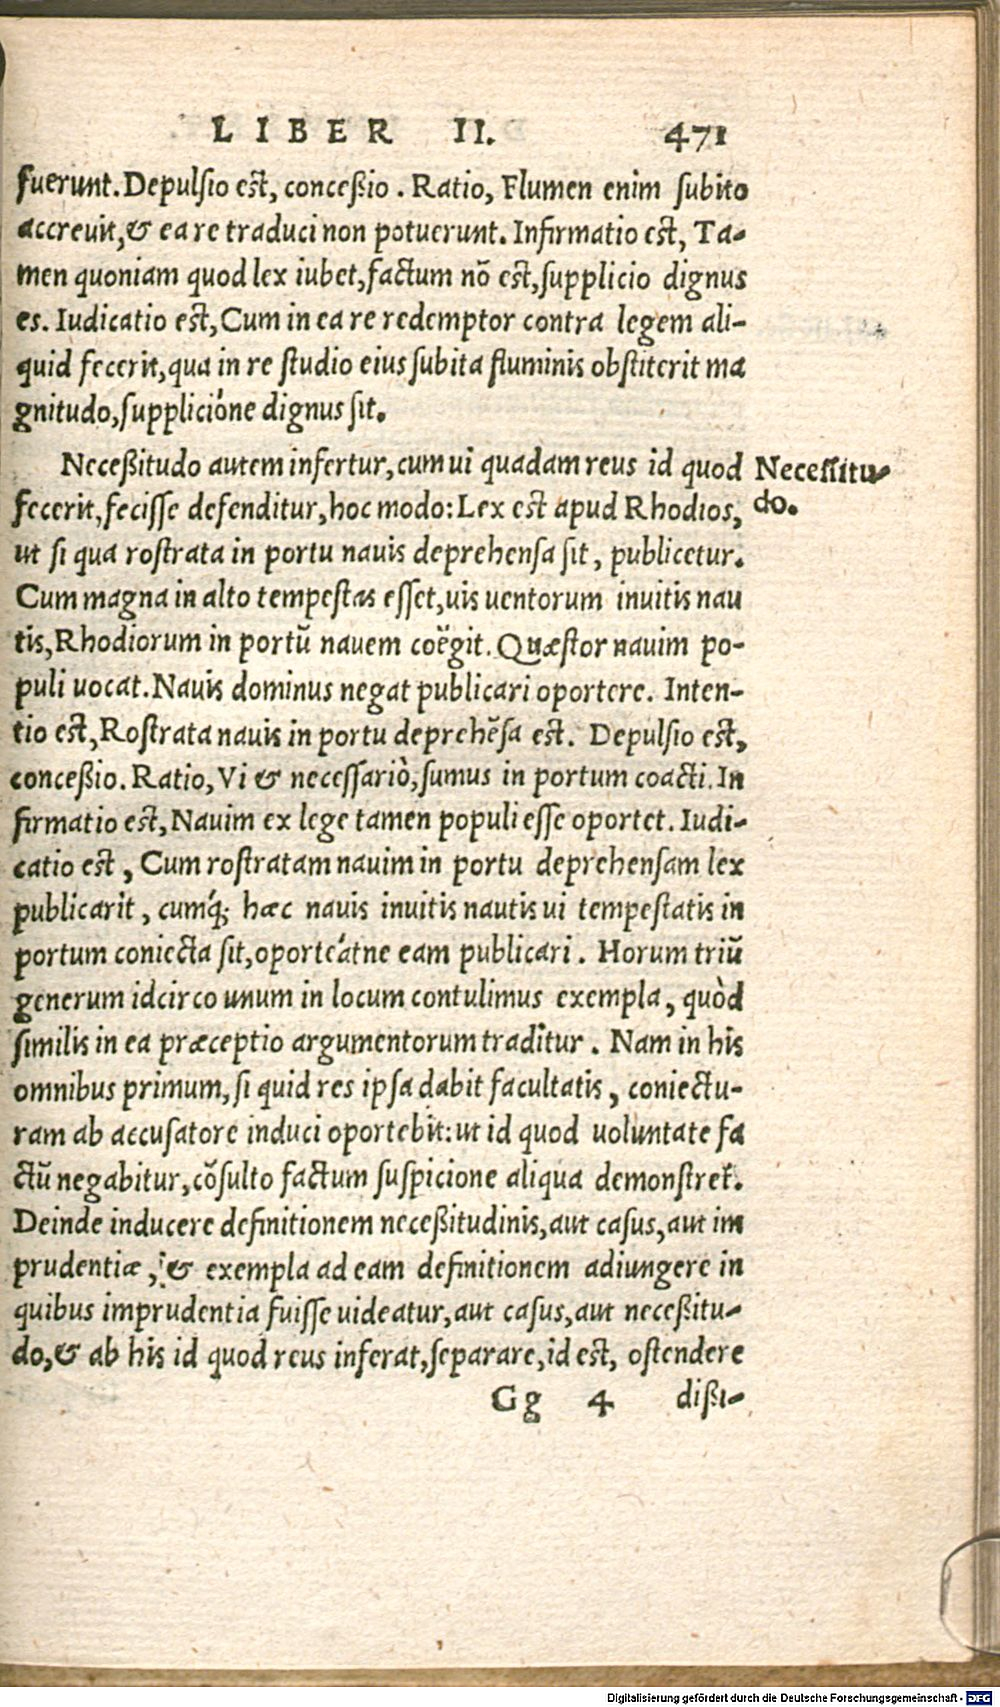 LIBER II. 471
fuerunt. Depulſio eſt, conceßio. Ratio, Flumen enim ſubito
accreuit, & ea re traduci non potuerunt. Infirmatio eſt, Ta-
men quoniam quod lex iubet, factum nõ eſt, ſupplicio dignus
es. Iudicatio eſt, Cum in ea re redemptor contra legem ali-
quid fecerit, qua in re ſtudio eius ſubita fluminis obſtiterit ma
gnitudo, ſuppliciόne dignus ſit.
Neceßitudo autem infertur, cum ui quadam reus id quod
Neceſſitu-
do.
fecerit, feciſſe defenditur, hoc modo: Lex eſt apud Rhodios,
ut ſi qua roſtrata in portu nauis deprehenſa ſit, publicetur.
Cum magna in alto tempeſtas eſſet, uis uentorum inuitis nau
tis, Rhodiorum in portũ nauem coëgit. Quæſtor nauim po-
puli uocat. Nauis dominus negat publicari oportere. Inten-
tio eſt, Roſtrata nauis in portu deprehẽſa eſt. Depulſio eſt,
conceßio. Ratio, Vi & neceſſariò, ſumus in portum coacti. In
firmatio eſt, Nauim ex lege tamen populi eſſe oportet. Iudi-
catio eſt, Cum roſtratam nauim in portu deprehenſam lex
publicarit, cumq́; hæc nauis inuitis nautis ui tempeſtatis in
portum coniecta ſit, oporteátne eam publicari. Horum triũ
generum idcirco unum in locum contulimus exempla, quòd
ſimilis in ea præceptio argumentorum traditur. Nam in his
omnibus primum, ſi quid res ipſa dabit facultatis, coniectu-
ram ab accuſatore induci oportebit: ut id quod uoluntate fa
ctũ negabitur, cõſulto factum ſuſpicione aliqua demonſtret.
Deinde inducere definitionem neceßitudinis, aut caſus, aut im
prudentiæ, & exempla ad eam definitionem adiungere in
quibus imprudentia fuiſſe uideatur, aut caſus, aut neceßitu-
do, & ab his id quod reus inferat, ſeparare, id eſt, oſtendere
Gg 4 dißi-
Digitalisierung gefördert durch die Deutsche Forschungsgemeinschaft - DFG